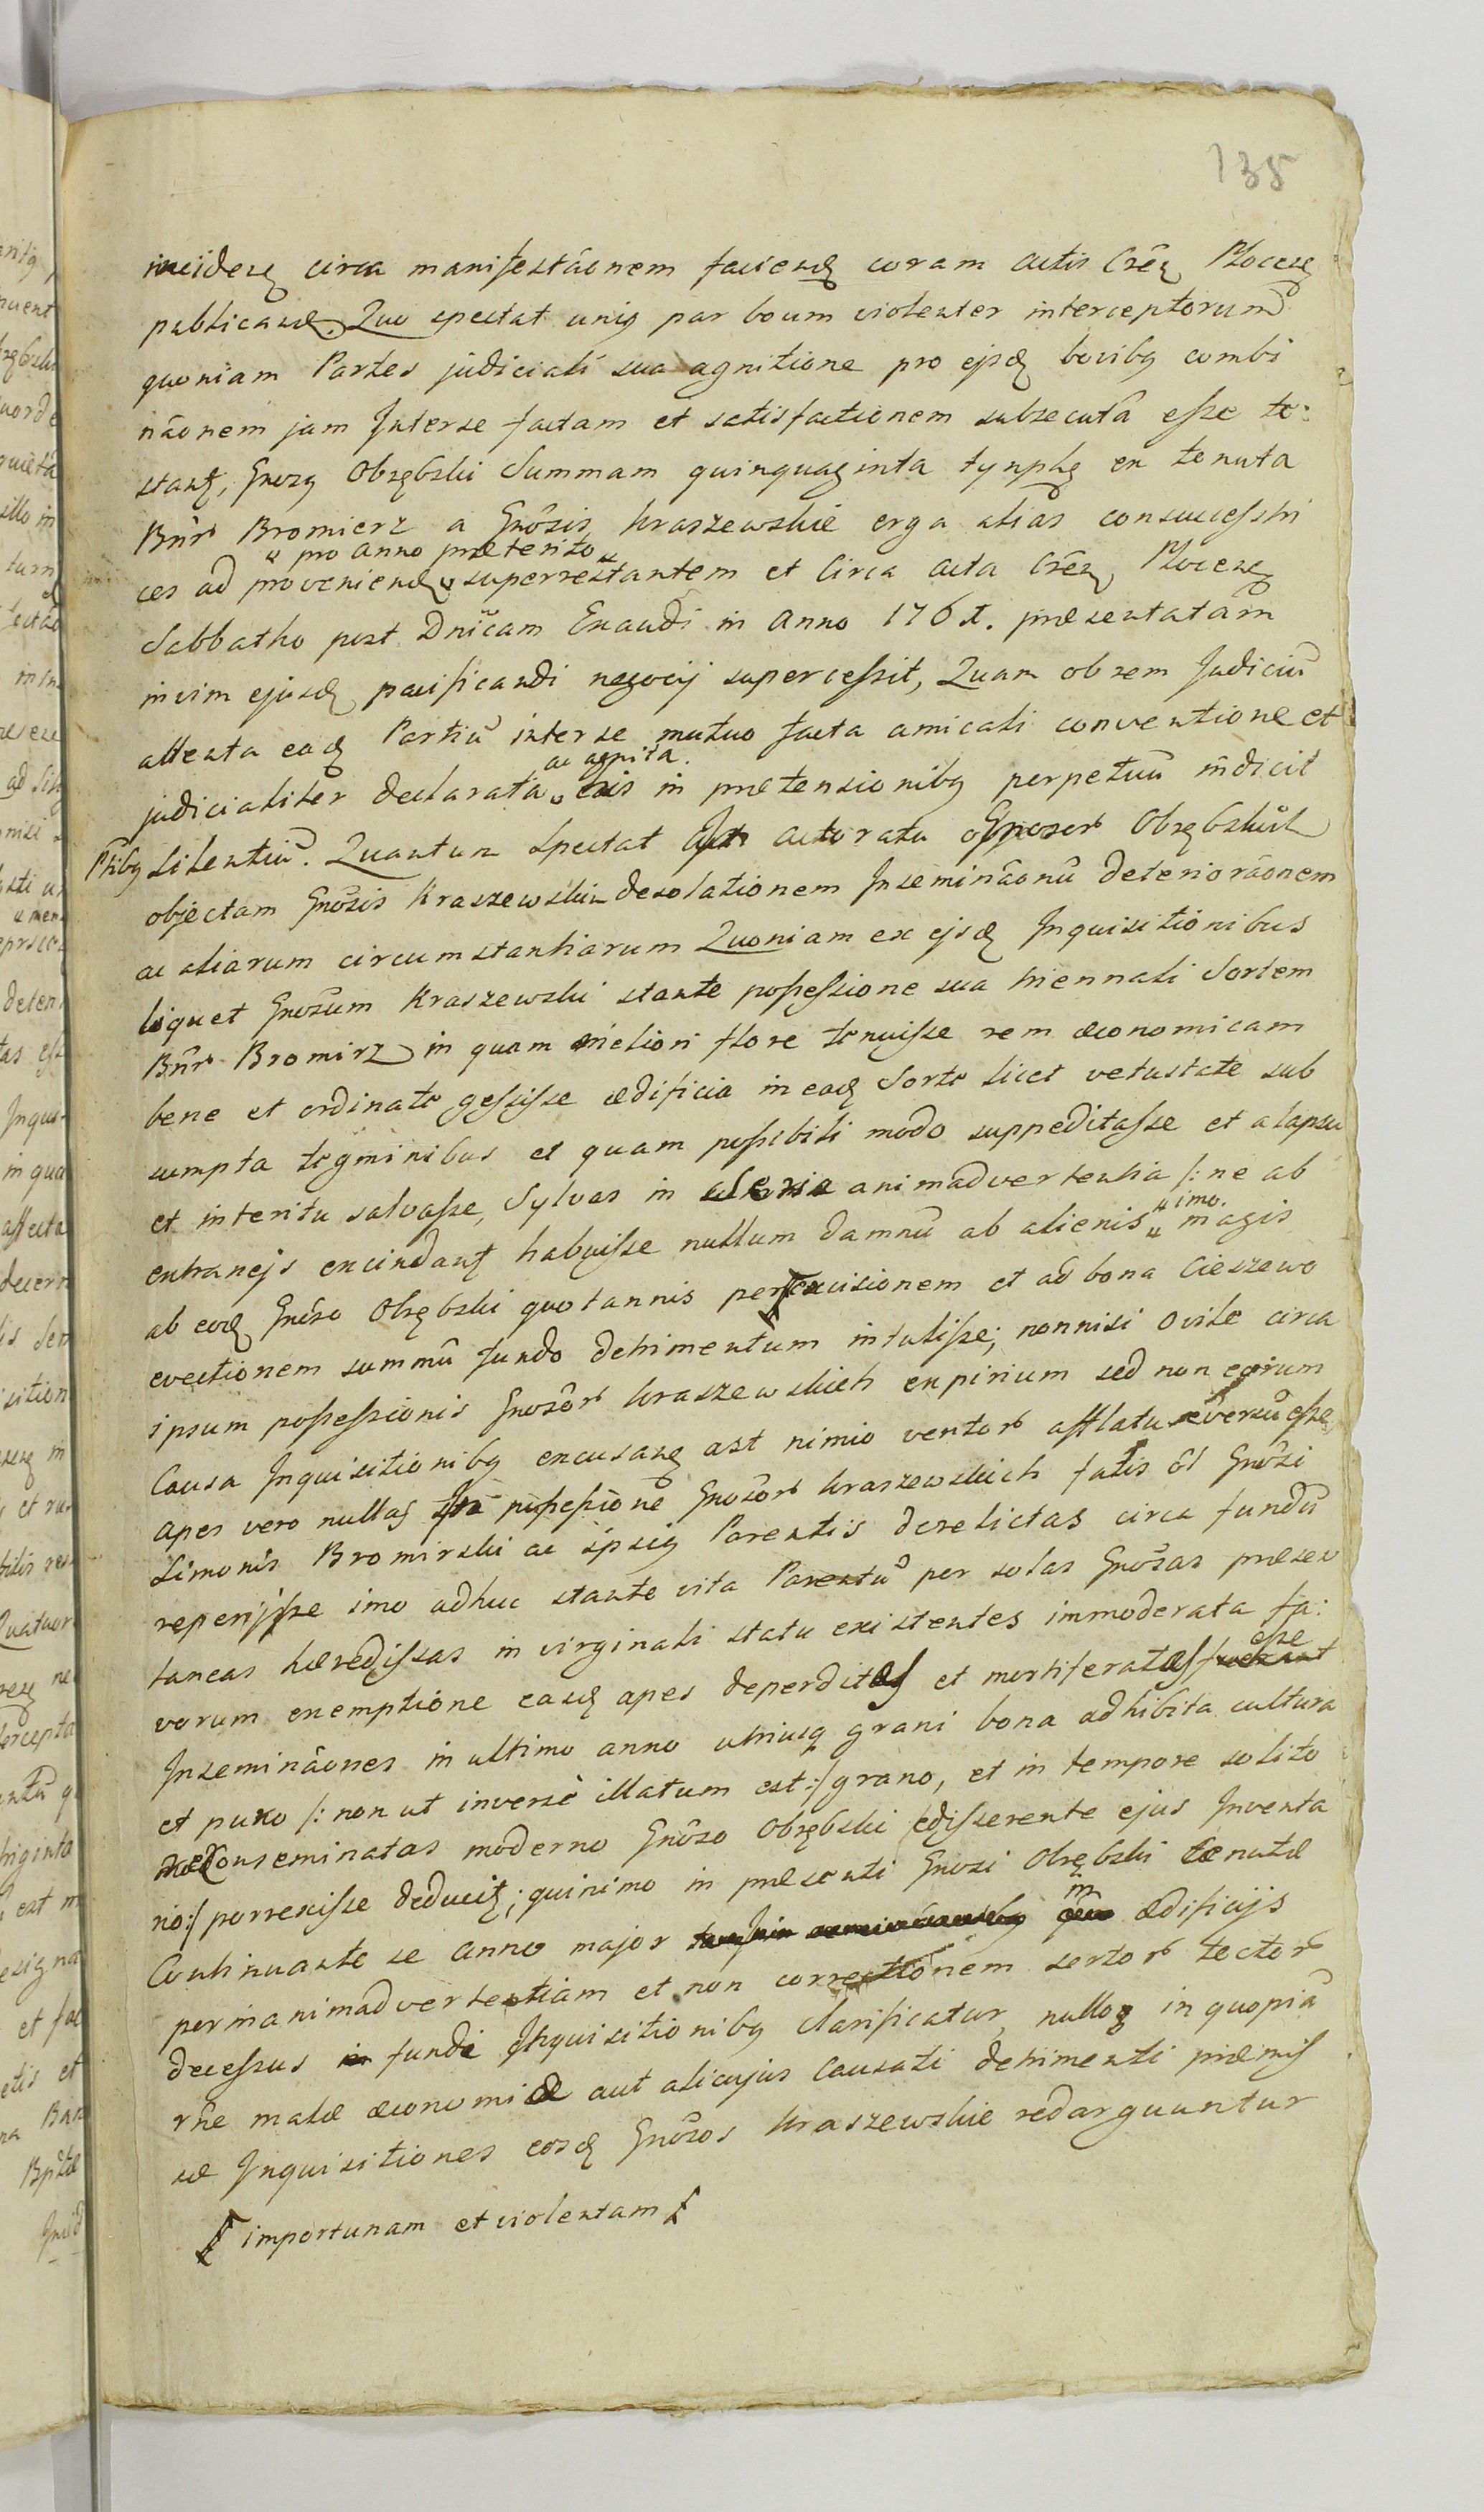 135
incidenę circa manifestãonem faciendę coram actis Crẽę Plocenę
publicandę. Quo spectat unių par boum violenter interceptorum
quoniam Partes judiciali sua agnitione pro ejsdę bovibų combi
nãonem jam Interse factam et satisfactionem subsecutã esse te:
stantę, Gnosų Obrębski Summam quinquaginta tynphę ex tenuta
Bnr̃ Bromierz a Gnõsis Kraszewskie erga alias consuccesstri
" pro anno præterito "
ces ad provenienę " superrestantem et Circa acta Crẽę Plocenę
Sabbatho post Dnĩcam Exaudi in Anno 176 . præsentatam
in vim ejusdę pacificandi negocij supercessit, Quam ob rem Judiciũ
attenta eadę Partiũ inter se mutuo facta amicali conventione et
ac agnita.
judicialiter declarata " eis in prætensionibų perpetuũ indicit
Ptibų silentiũ. Quantum spectat actoratu Gnosor Obrębskich
objectam Gnõsis Kraszewskie desolationem Inseminãonũ deteriorãonem
ac aliarum circumstantiarum Quoniam ex ejsdę Inquisitionibus
liquet Gnosum Kraszewski stante possessione sua triennali Sortem
Bnr̃ Bromirz in quam meliori flore tenuisse rem œconomicam
bene et ordinate gessisse ædificia in eadę Sorte licet vetustate sub
sumpta tegminibus et quam possibili modo suppeditasse et a lapsu
et interitu salvasse, Sylvas in animadvertentia /: ne ab
" imo.
extraneis excindantę habuisse nullum damnũ ab alienis " magis
ab eodę Gnõso Obrębski quotannis per excisionem et ad bona Cieszewo
evectionem summũ fundo detrimentum intulisse; nonnisi ovile circa
ipsum possessionis Gnosõr Kraszewskich expirium sed non eorum
Causa Inquisitionibų excusanę ast nimio ventor afflatu eversũ esse
apes vero nullas possessione Gnosõr Kraszewskich fatis õl Gnõsi
Simonis Bromirski ac ipsių Parentis derelictas circa fundũ
reperijsse imo adhuc stante vita Parentũ per solas Gnõsas præsen
taneas hæredissas in virginali statu existentes immoderata fa:
esse
vorum exemptione easdę apes deperditas et mortiferatas fuerant
Inseminãones in ultimo anno utriusę grani bona adhibita cultura
et puro /: non ut inversè illatum est :/ grano, et in tempore solito
conseminatas moderno Gnõso Obrębski /edisserente ejus Inventa
rio:/ porrexisse deducitę; quinimo in præsenti Gnosi Obrębski tenutæ
in
Continuante se anno major ædificijs
per inanimadvertentiam et non correctionem sertor tector
decessus fundi Inquisitionibų clarificatur, nulloę in quopiã
rñe malæ œconomiæ aut alicujus Causati detrimenti præmis
sæ Inquisitiones eosdę Gnõsos Kraszewskie redarguuntur
importunam et violentam